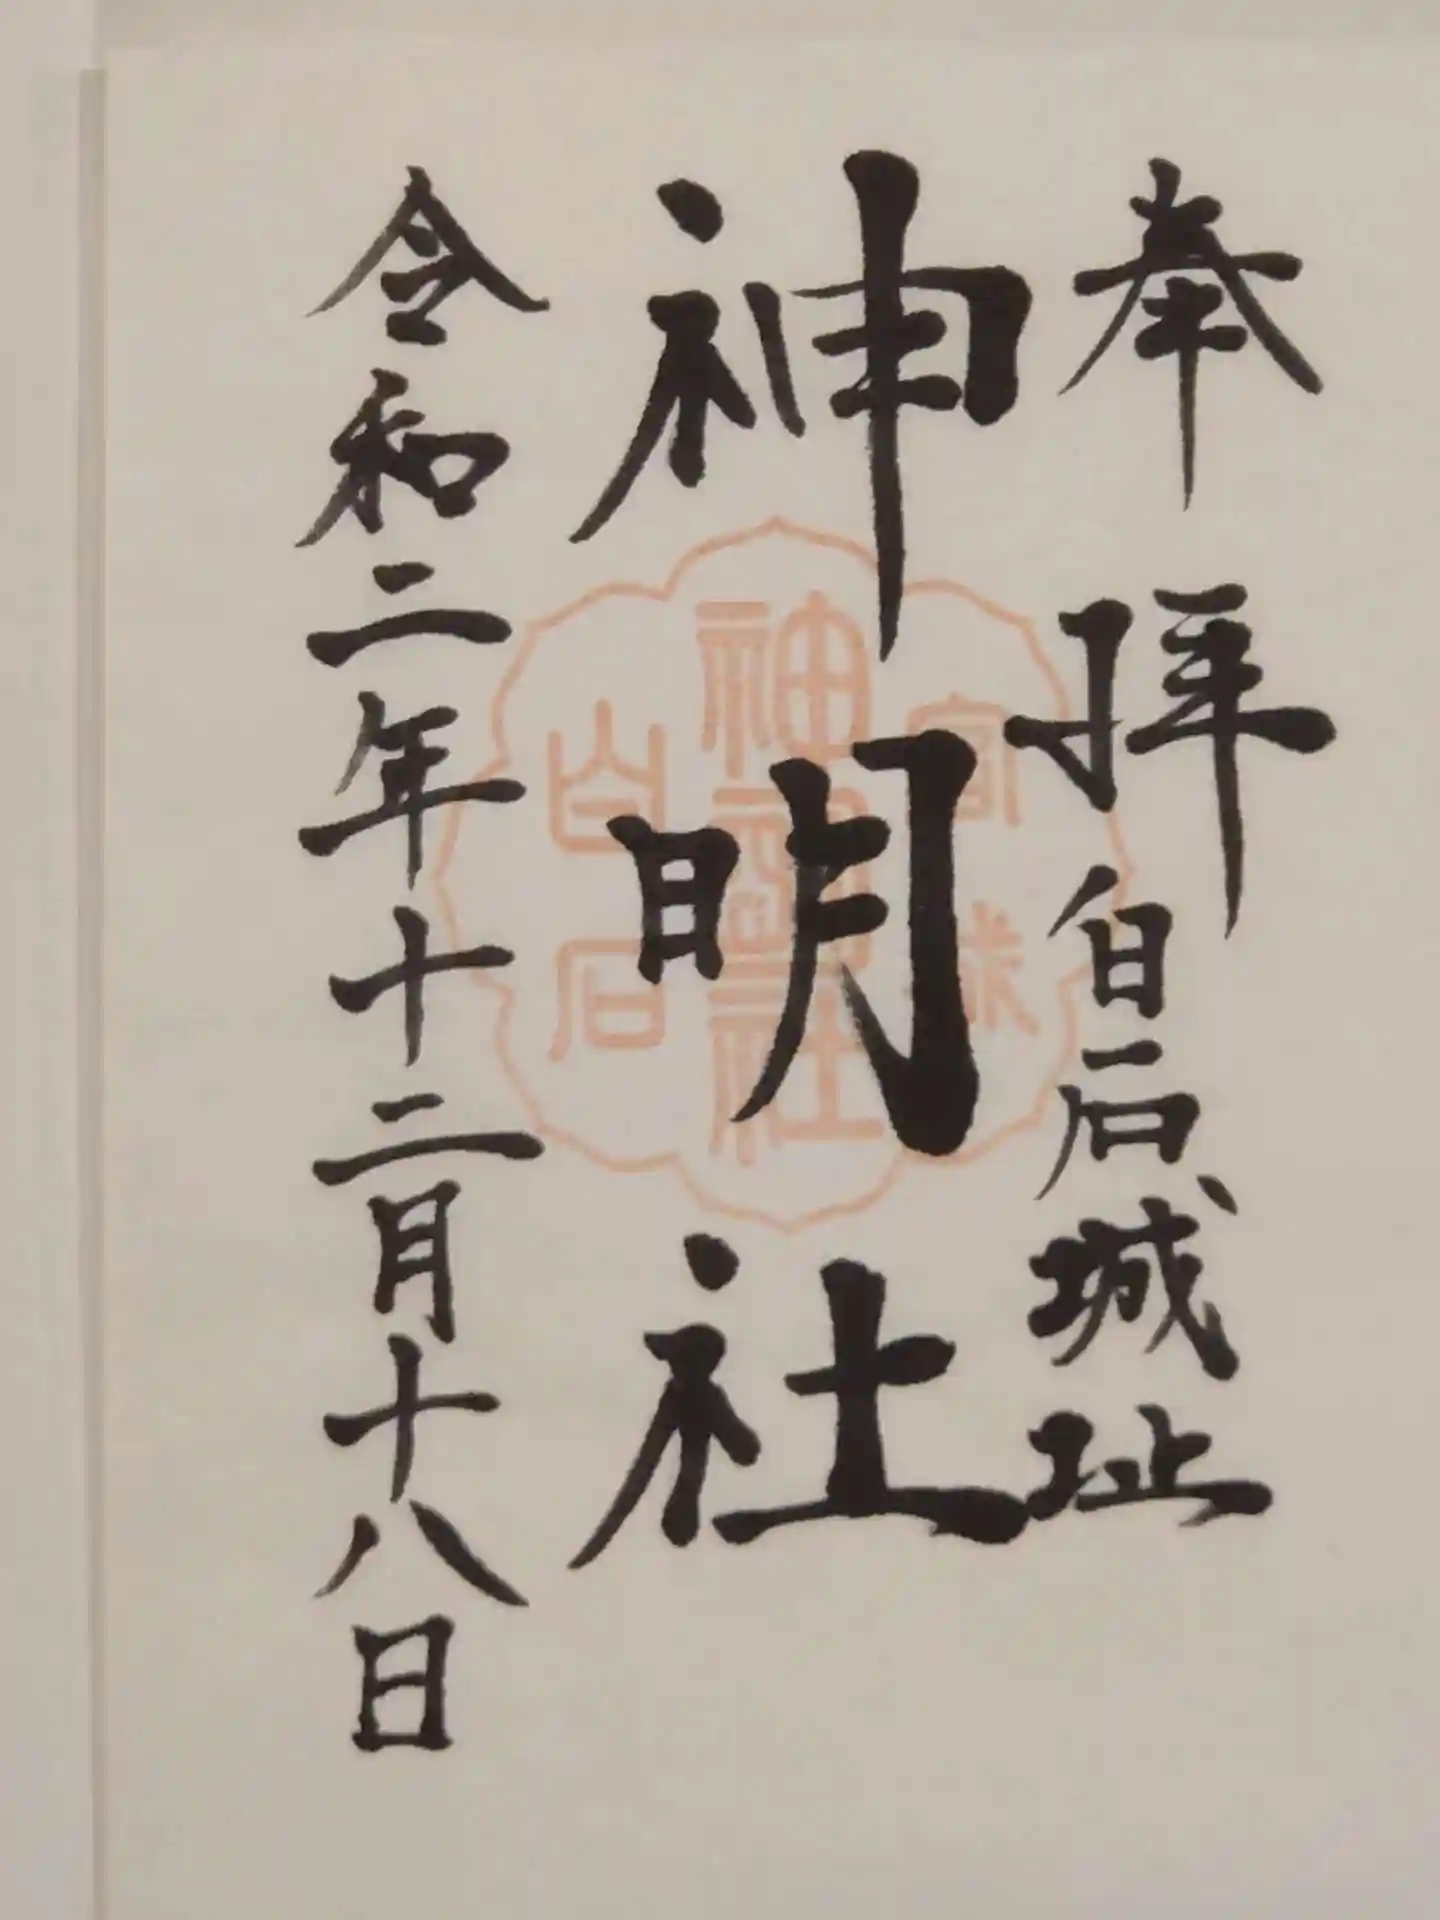 奉拝
白石城址
神明社
令和二年十二月十八日
神明社
宮城
白石